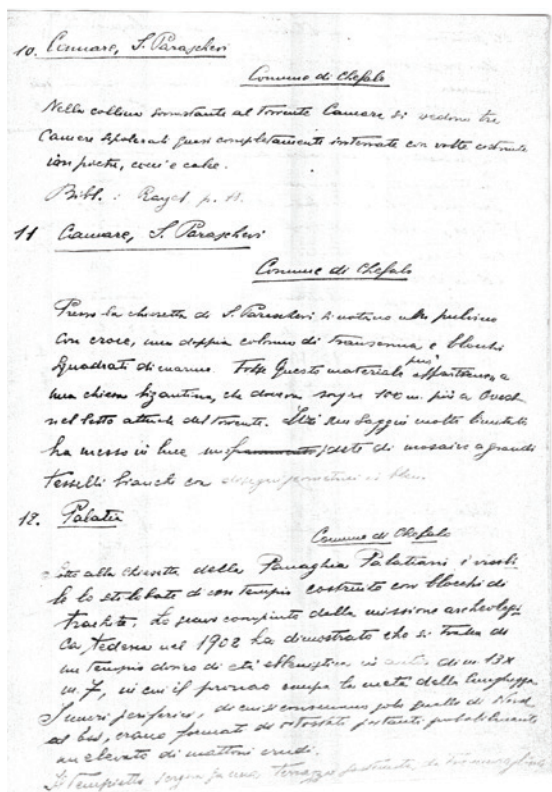 10. Camare, S. Paraschevi
Comune di Chefalo
Nella collina sovrastante al torrente Camare si vedono tre
Camere sepolcrali quasi completamente interrate con volte costruite
con pietre, cocci e calce.
Bibl. : Rayet p. 
11 Camare, S. Paraschevi
Comune di Chefalo
Presso la chiesetta di S. Paraschevi si notino un pulvino
con croce, una doppia colonna di transenna e blocchi
Quadrati di marmo. Forse questo materiale può appartenere a
una chiesa bizantina, che doveva sorgere 100 m. più a Ovest
nel letto attuale del torrente. Ivi un saggio molto limitato
ha messo in luce un di mosaico a grandi
tesselli bianchi con disegni geometrici in bleu.
12. Palatia
Comune di Chefalo
Sotto alla chiesetta della Panaghia Palatiani è visibi-
le lo stilobate di un tempio costruito con blocchi di
trachite. Lo scavo compiuto dalla missione archeologi-
ca tedesca nel 1902 ha dimostrato che si tratta di
un tempio dorico di età ellenistica in antis di m. 13 x
m. 7, in cui il pronao occupa la metà della lunghezza.
I muri periferici, di cui si conservano solo quelli di Nord
ed Est, erano formati da ortostati portanti probabilmente
un elevato di mattoni crudi.
Il tempietto sorge su una terrazza sostenuta da